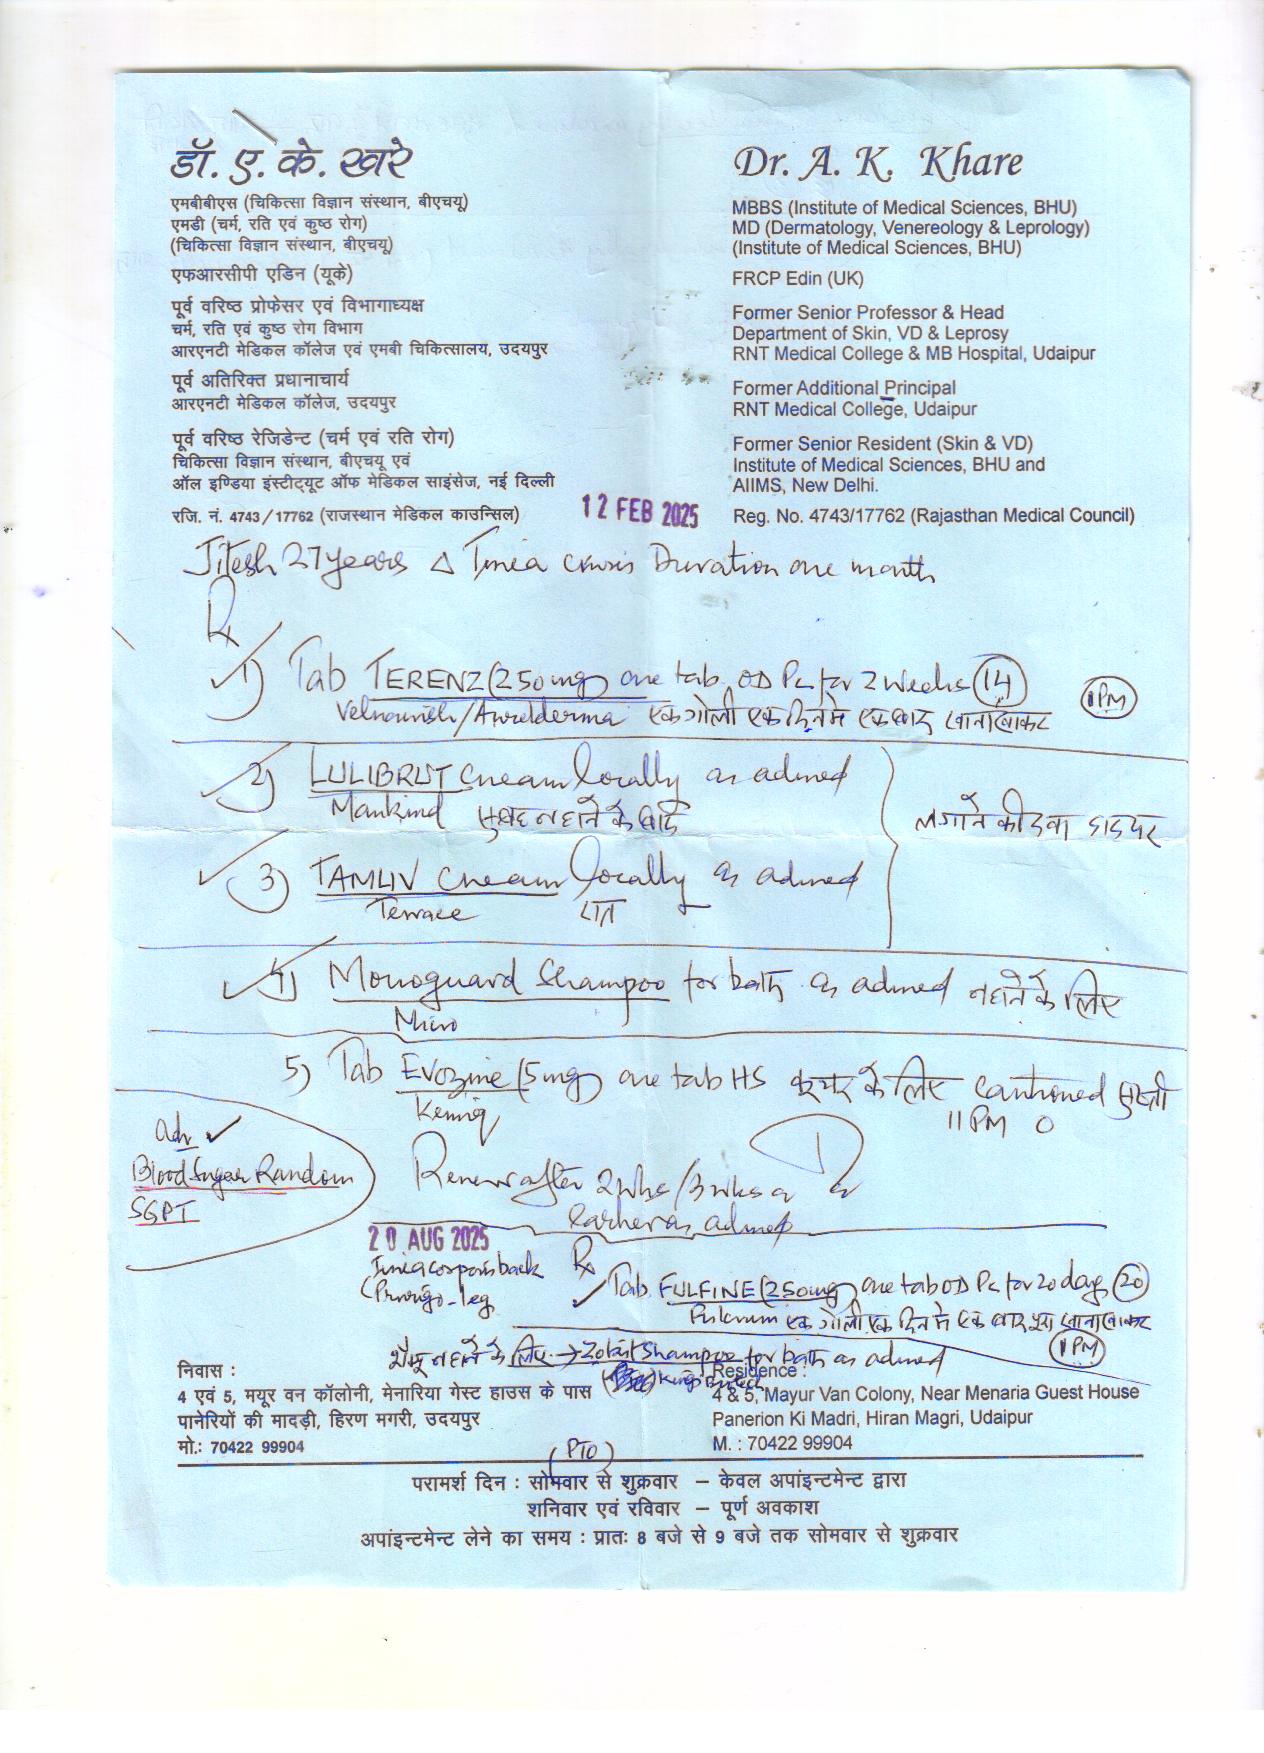 डॉ. ए. के. खरे
एमबीबीएस (चिकित्सा विज्ञान संस्थान, बीएचयू)
एमडी (चर्म, रति एवं कुष्ठ रोग)
(चिकित्सा विज्ञान संस्थान, बीएचयू)
एफआरसीपी एडिन (यूके)
पूर्व वरिष्ठ प्रोफेसर एवं विभागाध्यक्ष
चर्म, रति एवं कुष्ठ रोग विभाग
आरएनटी मेडिकल कॉलेज एवं एमबी चिकित्सालय, उदयपुर
पूर्व अतिरिक्त प्रधानाचार्य
आरएनटी मेडिकल कॉलेज, उदयपुर
पूर्व वरिष्ठ रेजिडेन्ट (चर्म एवं रति रोग)
चिकित्सा विज्ञान संस्थान, बीएचयू एवं
ऑल इण्डिया इंस्टीट्यूट ऑफ मेडिकल साइंसेज, नई दिल्ली
रजि. नं. 4743/17762 (राजस्थान मेडिकल काउन्सिल)
Dr. A. K. Khare
MBBS (Institute of Medical Sciences, BHU)
MD (Dermatology, Venereology & Leprology)
(Institute of Medical Sciences, BHU)
FRCP Edin (UK)
Former Senior Professor & Head
Department of Skin, VD & Leprosy
RNT Medical College & MB Hospital, Udaipur
Former Additional Principal
RNT Medical College, Udaipur
Former Senior Resident (Skin & VD)
Institute of Medical Sciences, BHU and
AIIMS, New Delhi.
Reg. No. 4743/17762 (Rajasthan Medical Council)
12 FEB 2025
Jitesh 27 years Δ Tinea cruris Duration one month
Rx
1) Tab TERENZ (250mg) one tab OD Pc for 2 weeks (14)
एक गोली एक दिन में एक बार खाना खाकर 1PM
2) LULIBRUT cream locally as advised
Mankind सुबह नहाने के बाद
लगाने की दवा
3) TAMLIV cream locally as advised
Terrace रात
4) Monoguard Shampoo for bath as advised नहाने के लिए
Micro
5) Tab Evozine (5mg) one tab HS के लिए cautioned सुस्ती
11 PM
Adv
Blood Sugar Random
SGPT
Review after 2wks/3wks or
earlier as advised
20 AUG 2025
Tinea corporis back
Prurigo - leg
Rx
Tab FULFINE (250mg) one tab OD Pc for 20 days (20)
एक गोली एक दिन में एक बार खाना खाकर
1PM
शैम्पू नहाने के लिए → Shampoo for bath as advised
निवास :
4 एवं 5, मयूर वन कॉलोनी, मेनारिया गेस्ट हाउस के पास
पानेरियों की मादड़ी, हिरण मगरी, उदयपुर
मो.: 70422 99904
Residence :
4 & 5, Mayur Van Colony, Near Menaria Guest House
Panerion Ki Madri, Hiran Magri, Udaipur
M. : 70422 99904
(PTO)
परामर्श दिन : सोमवार से शुक्रवार – केवल अपांइन्टमेन्ट द्वारा
शनिवार एवं रविवार – पूर्ण अवकाश
अपांइन्टमेन्ट लेने का समय : प्रातः 8 बजे से 9 बजे तक सोमवार से शुक्रवार